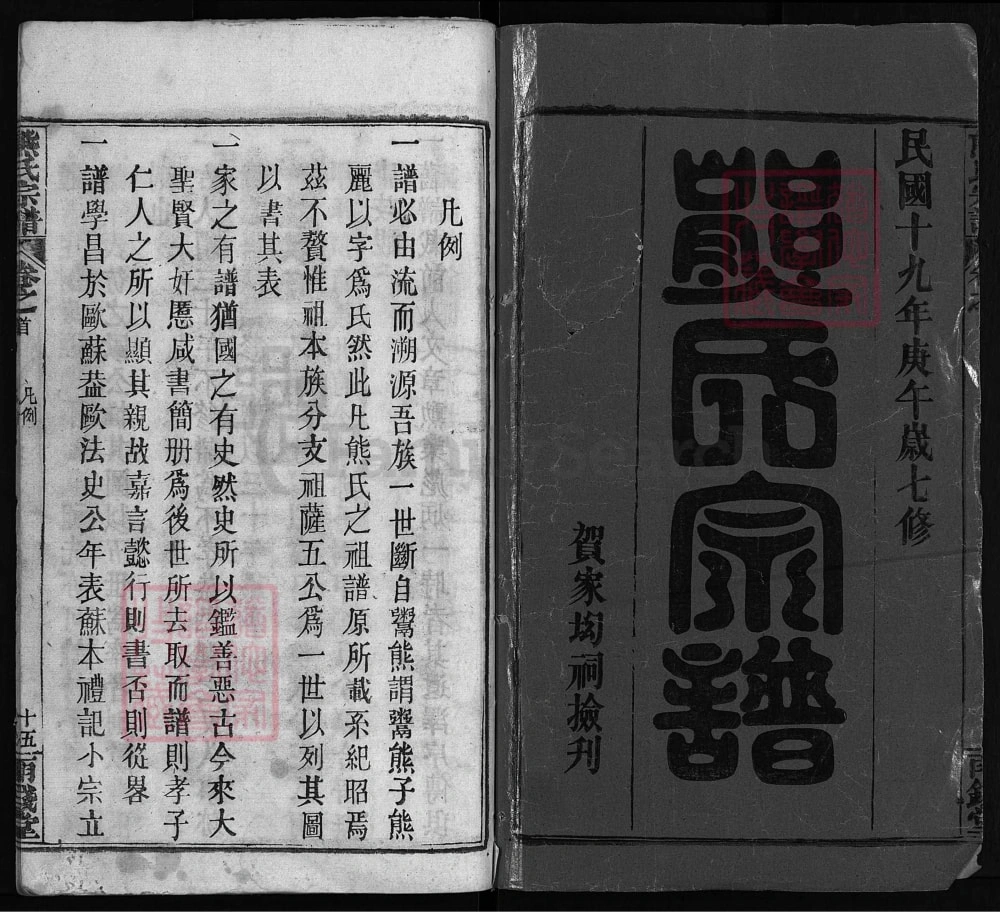 民國十九年庚午歲七修
熊氏宗譜
賀家坳祠撿刊
凡例
一譜必由流而溯源吾族一世斷自鬻熊謂鬻熊子熊
麗以字爲氏然此凡熊氏之祖譜原所載系紀昭焉
茲不贅惟祖本族分支祖薩五公爲一世以列其圖
以書其表
一家之有譜猶國之有史然史所以鑑善惡古今來大
聖賢大奸慝咸書簡册爲後世所去取而譜則孝子
仁人之所以顯其親故嘉言懿行則書否則從畧
一譜學昌於歐蘇葢歐法史公年表蘇本禮記小宗立
熊氏宗譜
卷之首
凡例
十五